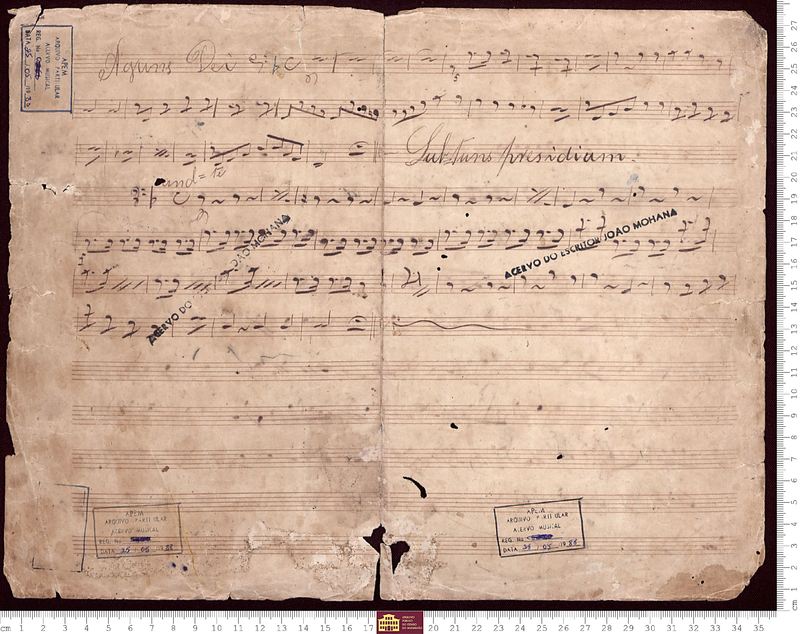 APEM
ARQUIVO PARTICULAR
ACERVO MUSICAL
REG. No
DATA 25 / 05 / 1988
Aguns Dei C
Subtuns presidiam.
And=te C
ACERVO DO ESCRITOR JOÃO MOHANA
ACERVO DO JOÃO MOHANA
APEM
ARQUIVO PARTICULAR
ACERVO MUSICAL
REG. No
DATA 25 / 05 / 1988
APEM
ARQUIVO PARTICULAR
ACERVO MUSICAL
REG. No
DATA 25 / 05 / 1988
cm 1 2 3 4 5 6 7 8 9 10 11 12 13 14 15 16 17 20 21 22 23 24 25 26 27 28 29 30 31 32 33 34 35
cm 1 2 3 4 5 6 7 8 9 10 11 12 13 14 15 16 17 18 19 20 21 22 23 24 25 26 27